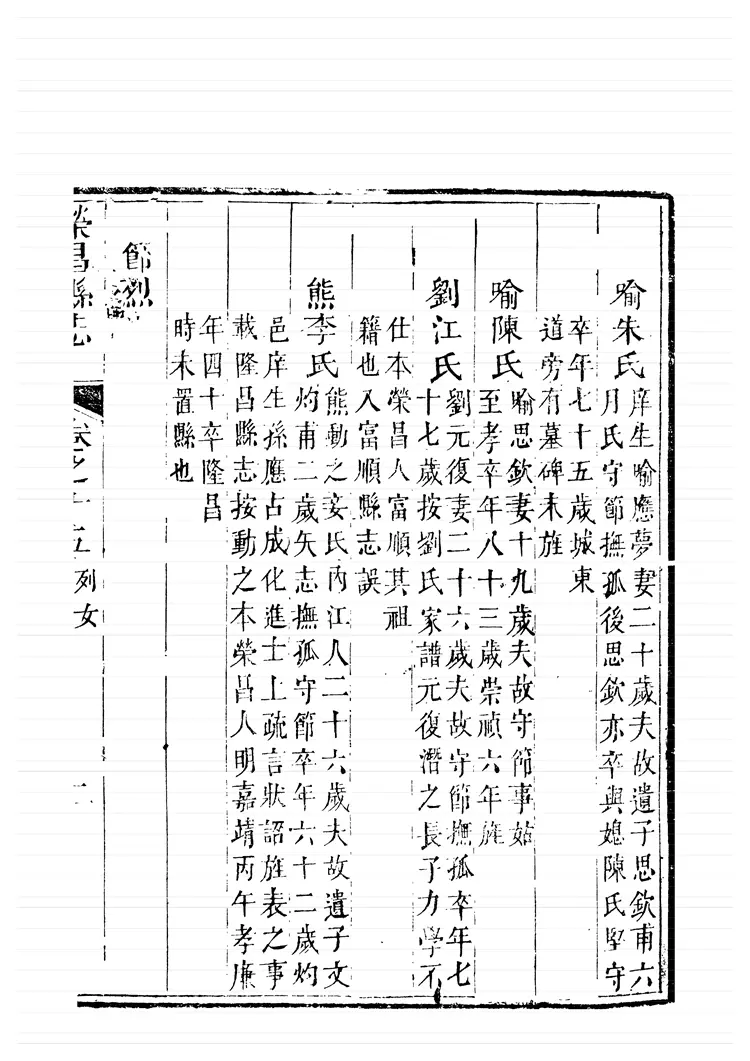 喻朱氏
庠生喻應夢妻二十歲夫故遺子思欽甫六
月氏守節撫孤後思欽亦卒與媳陳氏堅守
卒年七十五歲城東
道旁有墓碑未旌
喻陳氏
喻思欽妻十九歲夫故守節事姑
至孝卒年八十三歲崇禎六年旌
劉江氏
劉元復妻二十六歲夫故守節撫孤卒年七
十七歲按劉氏家譜元復潛之長子力學不
仕本榮昌人富順其祖
籍也入富順縣志誤
熊李氏
熊動之妾氏內江人二十六歲夫故遺子文
灼甫二歲矢志撫孤守節卒年六十二歲灼
邑庠生孫應占成化進士上疏言狀詔旌表之事
載隆昌縣志按動之本榮昌人明嘉靖丙午孝廉
年四十卒隆昌
時未置縣也
節烈
榮昌縣志
卷之十五
列女
二